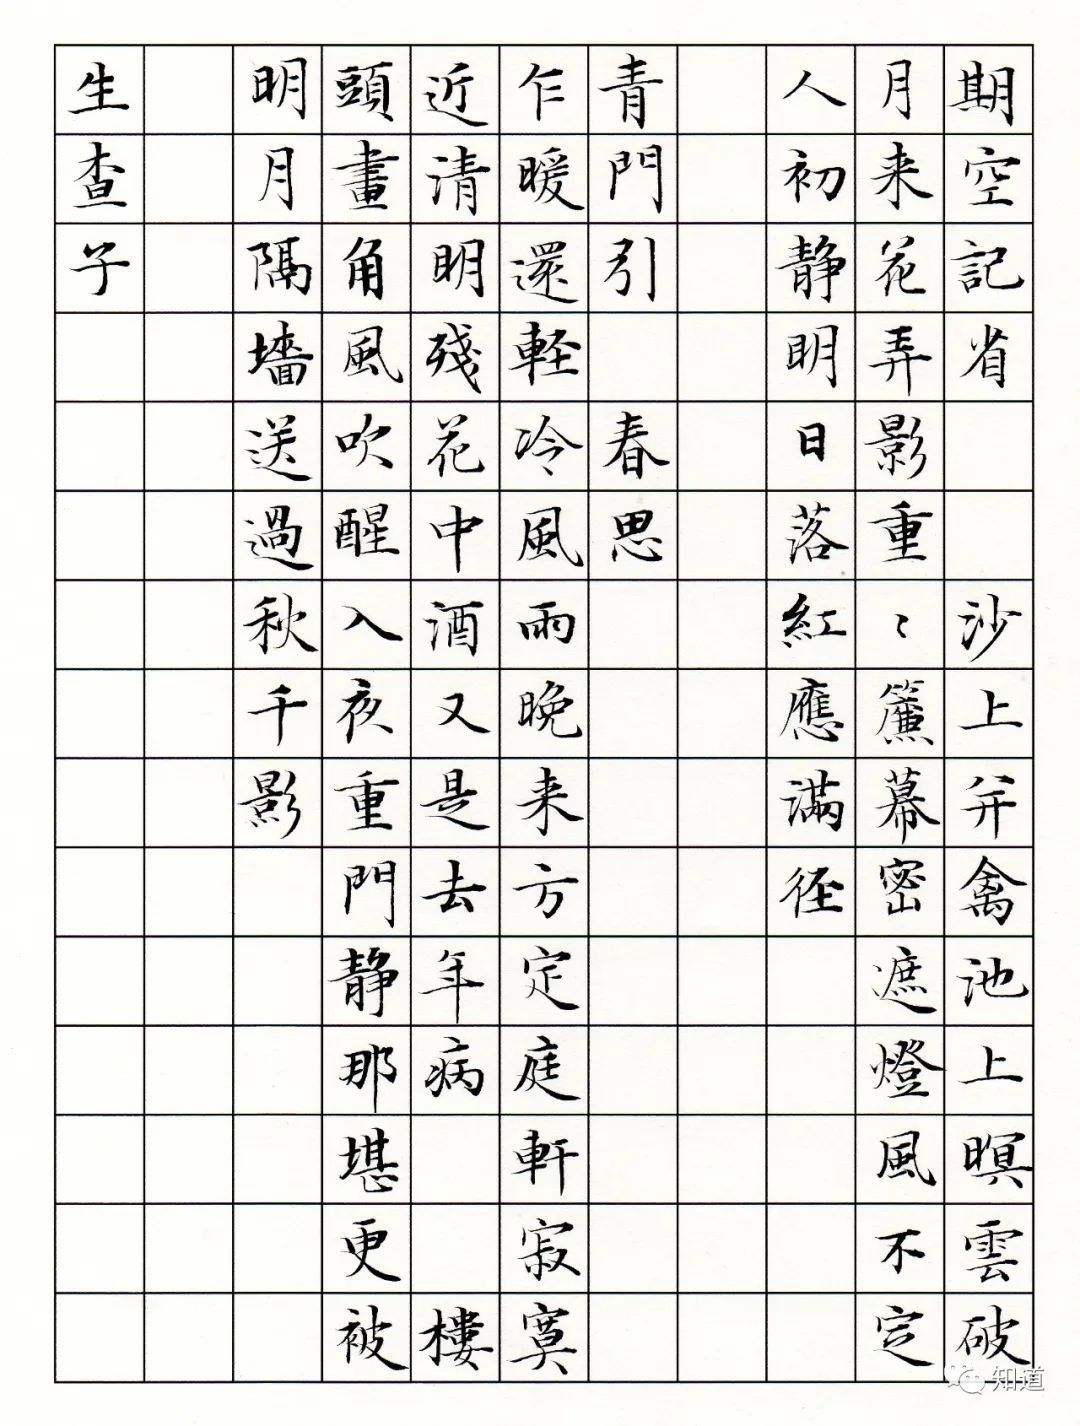 期空記省 沙上并禽池上暝雲破
月来花弄影重〻簾幕密遮燈風不定
人初静明日落紅應滿徑
青門引 春思
乍暖還軽冷風雨晚来方定庭軒寂寞
近清明殘花中酒又是去年病 樓
頭畫角風吹醒入夜重門静那堪更被
明月隔墻送過秋千影
生查子
知道